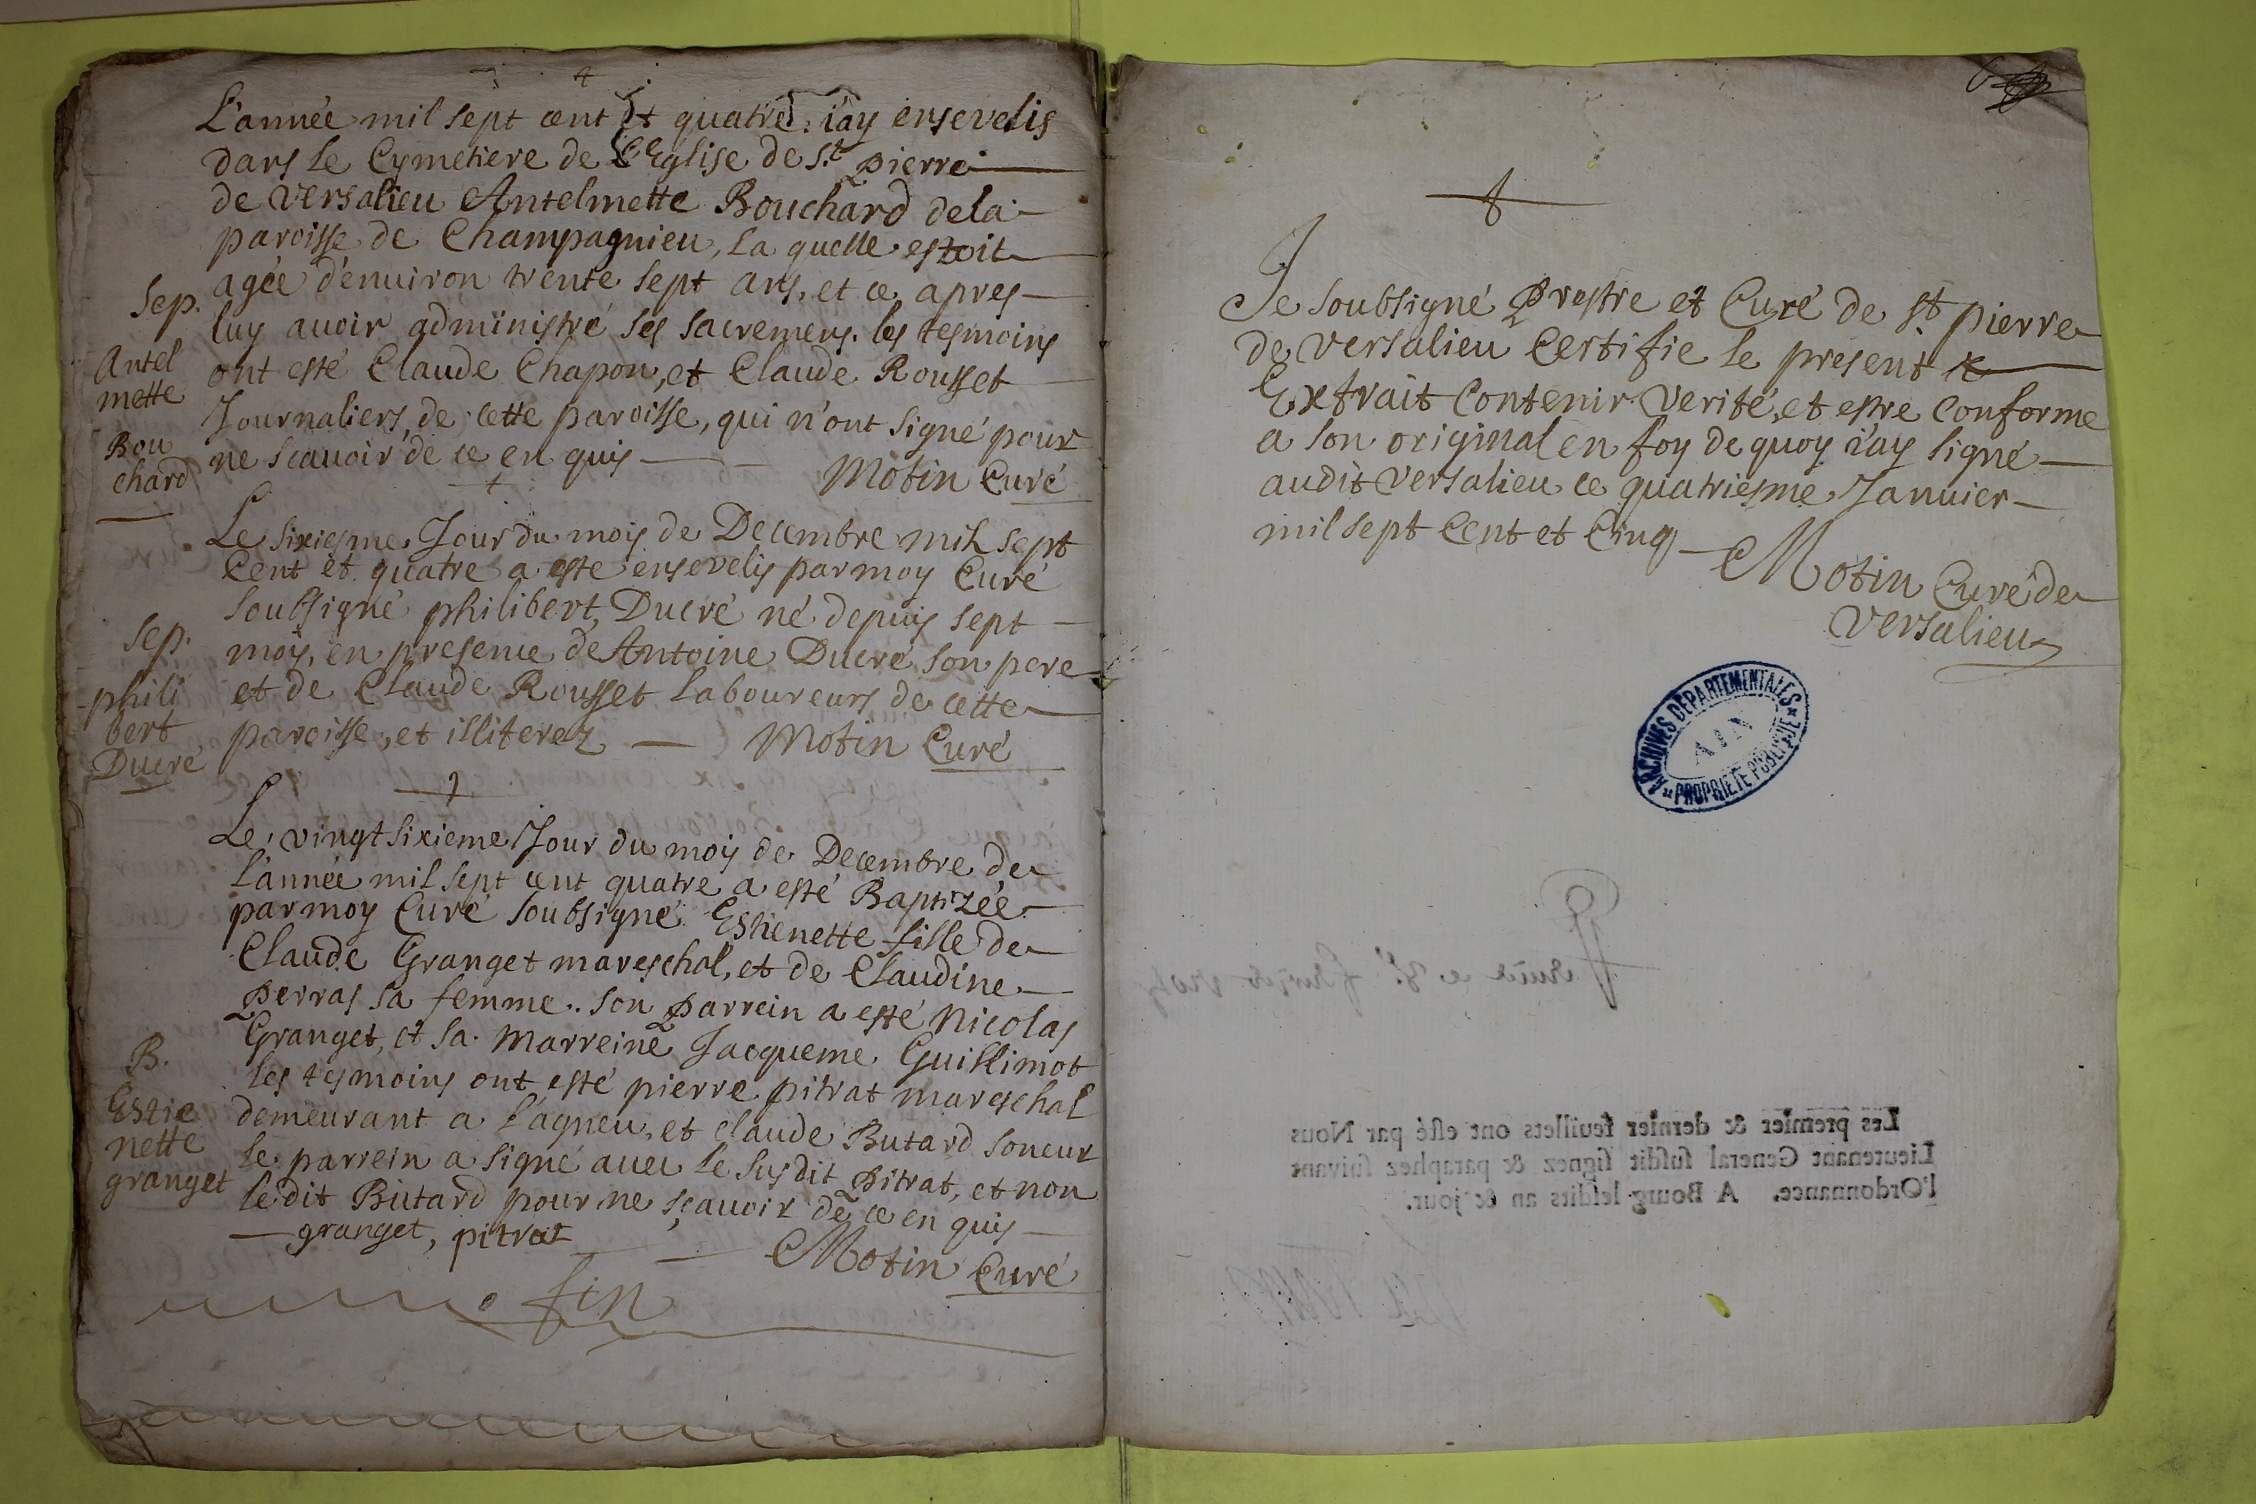 L'année mil sept cent et quatre. i'ay ensevelis
dans le Cymetiere de l'Eglise de St. pierre
de versalieu Antelmette Bouchard de la
paroisse de Champagnieu, la quelle estoit
agée d'enuiron trente sept ans, et ce apres
luy auoir administré ses sacremens. les tesmoins
ont esté Claude Chapon, et Claude Rousset
Journaliers, de cette paroisse, qui n'ont signé pour
ne scauoir de ce en quis
Motin Curé
Sep.
Antel
mette
Bou
chard
Le sixiesme Jour du mois de Decembre mil sept
Cent et quatre a esté ensevelis par moy Curé
soubsigné philibert Ducré né depuis sept
mois, en presence de Antoine Ducré son pere
et de Claude Rousset laboureurs de cette
paroisse, et illiterez Motin Curé
Sep.
phili
bert
Ducre
Le vingt sixieme Jour du mois de Decembre de
l'année mil sept cent quatre a esté Baptizée
par moy Curé soubsigné Estienette fille de
Claude Granget mareschal, et de Claudine
Perras sa femme. son parrein a esté Nicolas
Granget, et sa Marreine Jacqueme Guillimot
les tesmoins ont esté pierre pitrat mareschal
demeurant a lagneu, et claude Butard soneur
le parrein a signé auec le susdit pitrat, et non
ledit Butard pour ne sçauoir de ce en quis
granget, pitrat
Motin Curé
B.
Estie
nette
granget
fin
Je soubsigné Prestre et Curé de St pierre
de versalieu Certifie le present
Extrait Contenir verité, et estre conforme
a son original en foy de quoy i'ay signé
audit versalieu ce quatriesme Januier
mil sept Cent et Cinq
Motin Curé de
versalieu
ARCHIVES DEPARTEMENTALES
AIN
PROPRIETE PUBLIQUE
Les premier & dernier feuillets ont esté par Nous
Lieutenant General susdit signez & paraphez suivant
l'Ordonnance. A Bourg lesdits an & jour.